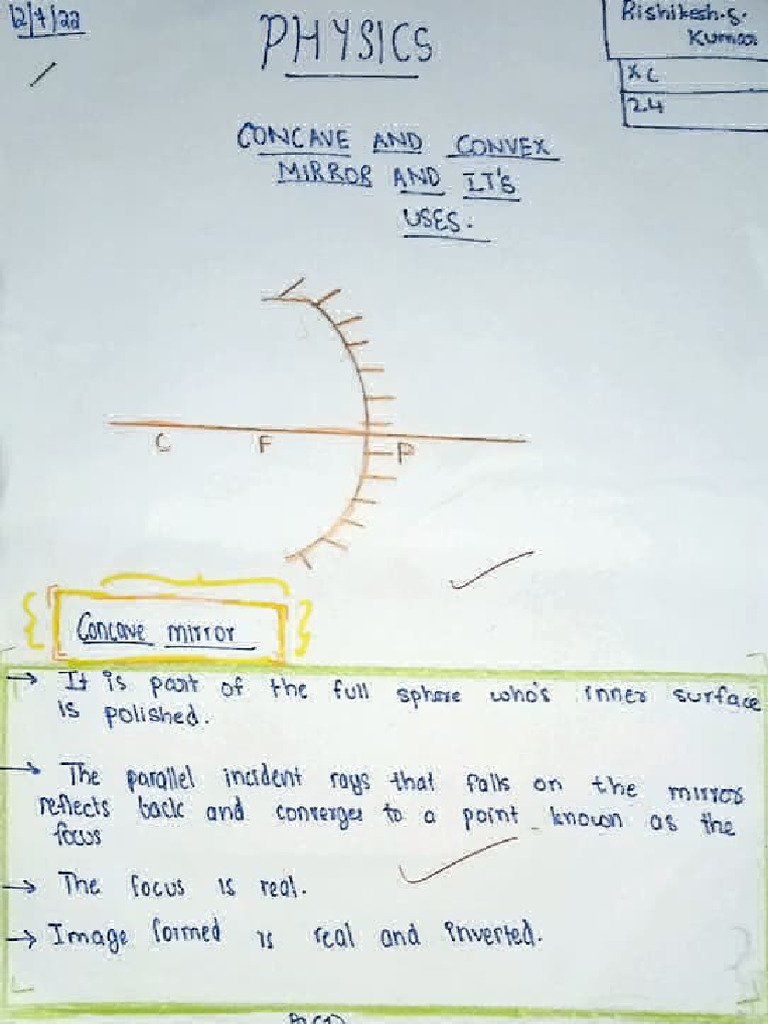 12/7/22
PHYSICS
Rishikesh.S.
Kumar
X C
24
CONCAVE AND CONVEX
MIRROR AND IT'S
USES.
C F P
Concave mirror
→ It is part of the full sphere who's inner surface
is polished.
→ The parallel incident rays that falls on the mirror
reflects back and converges to a point known as the
focus
→ The focus is real.
→ Image formed is real and inverted.